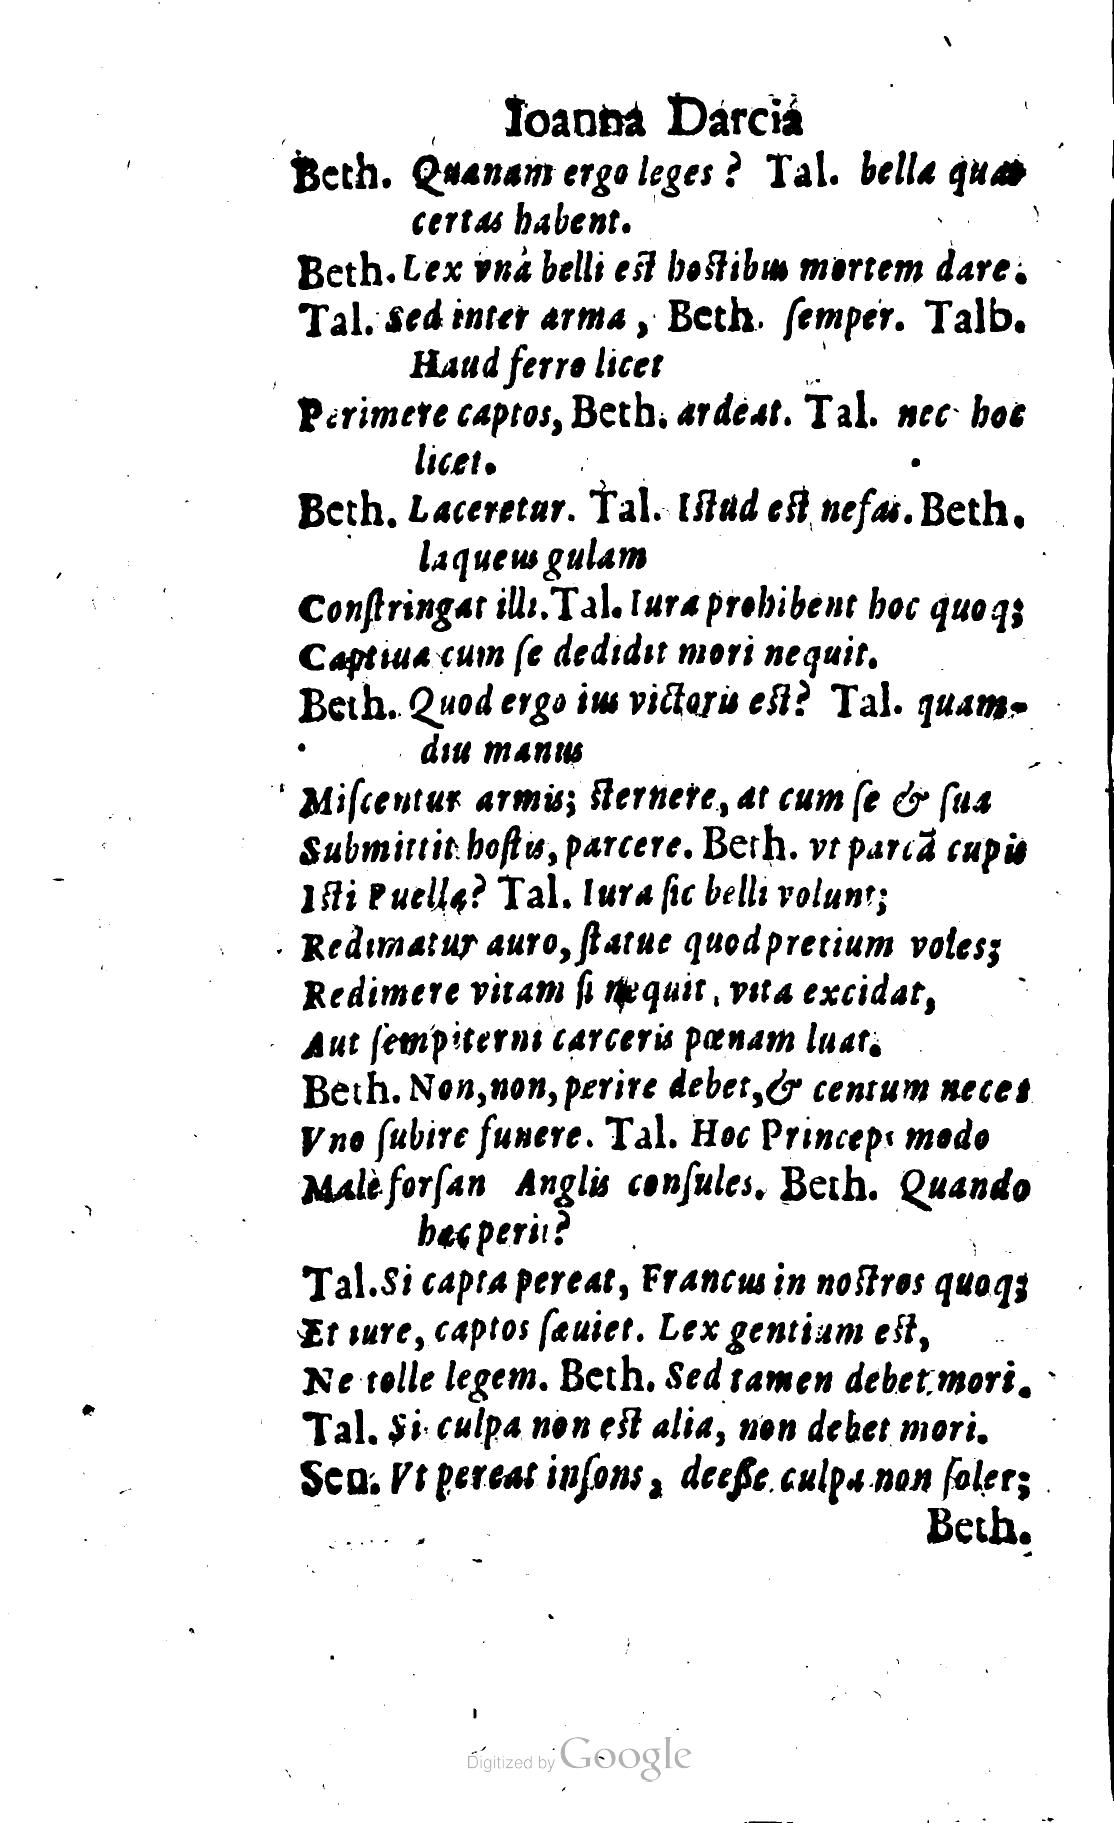 Ioanna Darcia
Beth. Quanam ergo leges? Tal. bella quas
certas habent.
Beth. Lex vna belli est hostibus mortem dare.
Tal. Sed inter arma, Beth. ſemper. Talb.
Haud ferro licet
Perimere captos, Beth. ardeat. Tal. nec hoc
licet.
Beth. Laceretur. Tal. Iſtud eſt nefas. Beth.
laqueus gulam
Conſtringat illi. Tal. Iura prohibent hoc quoq;
Captiua cum ſe dedidit mori nequit.
Beth. Quod ergo ius victoris eſt? Tal. quam-
diu manus
Miſcentur armis; ſternere, at cum ſe & ſua
Submittit hoſtis, parcere. Beth. vt parcã cupis
Iſti Puellę? Tal. Iura ſic belli volunt;
Redimatur auro, ſtatue quod pretium voles;
Redimere vitam ſi nequit, vita excidat,
Aut ſempiterni carceris pœnam luat.
Beth. Non, non, perire debet, & centum neces
Vno ſubire funere. Tal. Hoc Princeps modo
Malè forſan Anglis conſules. Beth. Quando
hæc perit?
Tal. Si capta pereat, Francus in noſtros quoq;
Et iure, captos ſæuiet. Lex gentium eſt,
Ne tolle legem. Beth. Sed tamen debet mori.
Tal. Si culpa non eſt alia, non debet mori.
Sen. Vt pereat inſons, deeſſe culpa non ſolet;
Beth.
Digitized by Google